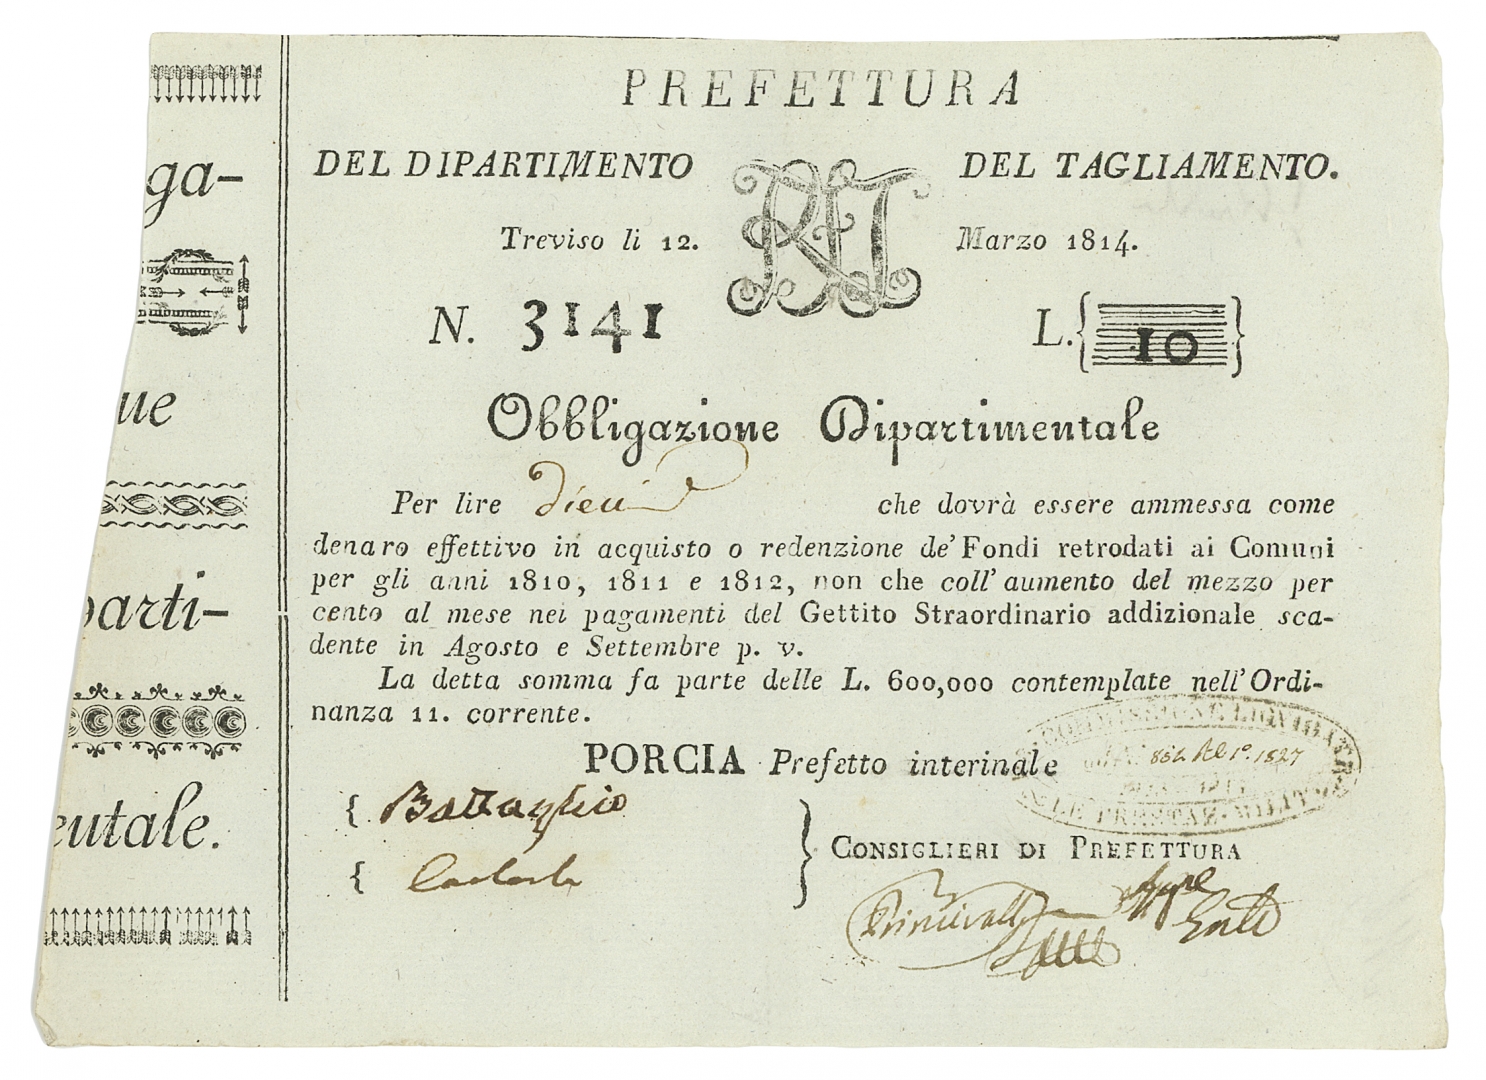 PREFETTURA
DEL DIPARTIMENTO DEL TAGLIAMENTO.
Treviso li 12. Marzo 1814.
N. 3141 L. { 10 }
Obbligazione Dipartimentale
Per lire dieci che dovrà essere ammessa come
denaro effettivo in acquisto o redenzione de' Fondi retrodati ai Comuni
per gli anni 1810, 1811 e 1812, non che coll' aumento del mezzo per
cento al mese nei pagamenti del Gettito Straordinario addizionale sca-
dente in Agosto e Settembre p. v.
La detta somma fa parte delle L. 600,000 contemplate nell' Ordi-
nanza 11. corrente.
PORCIA Prefetto interinale
{ Battaglia
{
} CONSIGLIERI DI PREFETTURA
1827
ga-
ue
parti-
entale.